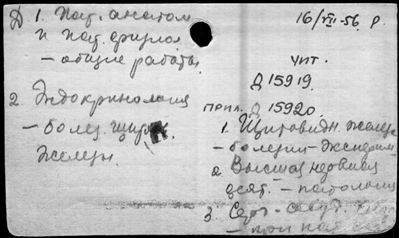 Д 1. Пат. анатом
и пат. физиол
– общие работы
2. Эндокринология
– болез. щит
железы.
16/VII-56. Р.
чит.
Д 15919.
прил. Д 15920
1. Щитовидн. железа
– болезни – эксперим
2. Высшая нервная
деят. – патология
3. Серд.